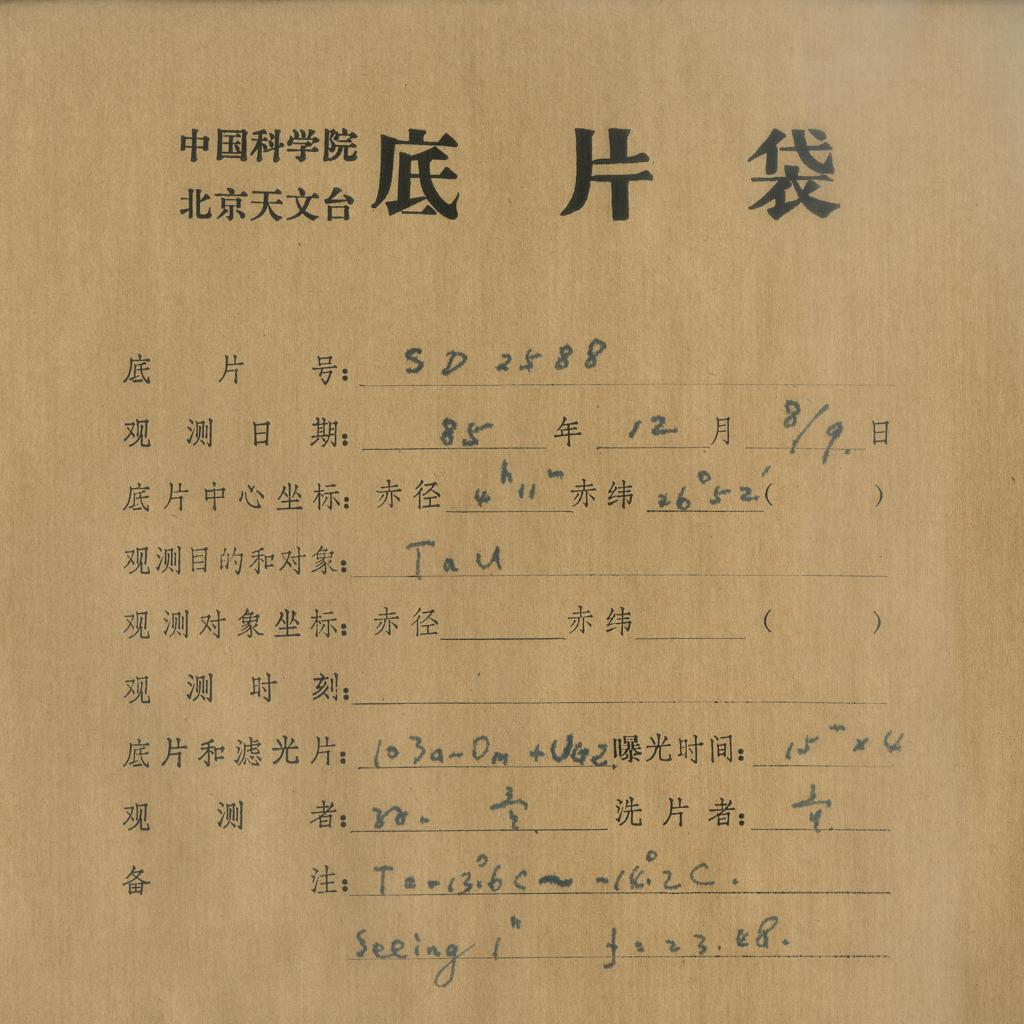 中国科学院
北京天文台
底片袋
底片号: SD 2588
观测日期: 85 年 12 月 8/9. 日
底片中心坐标: 赤径 4h11m 赤纬 26°52′ ( )
观测目的和对象: TaU
观测对象坐标: 赤径 赤纬 ( )
观测时刻:
底片和滤光片: 103a-Om + UG2 曝光时间: 15m × 4
观测者: 洗片者:
备注: T = -13°.6C ~ -14°.2C.
Seeing 1" f = 23.48.